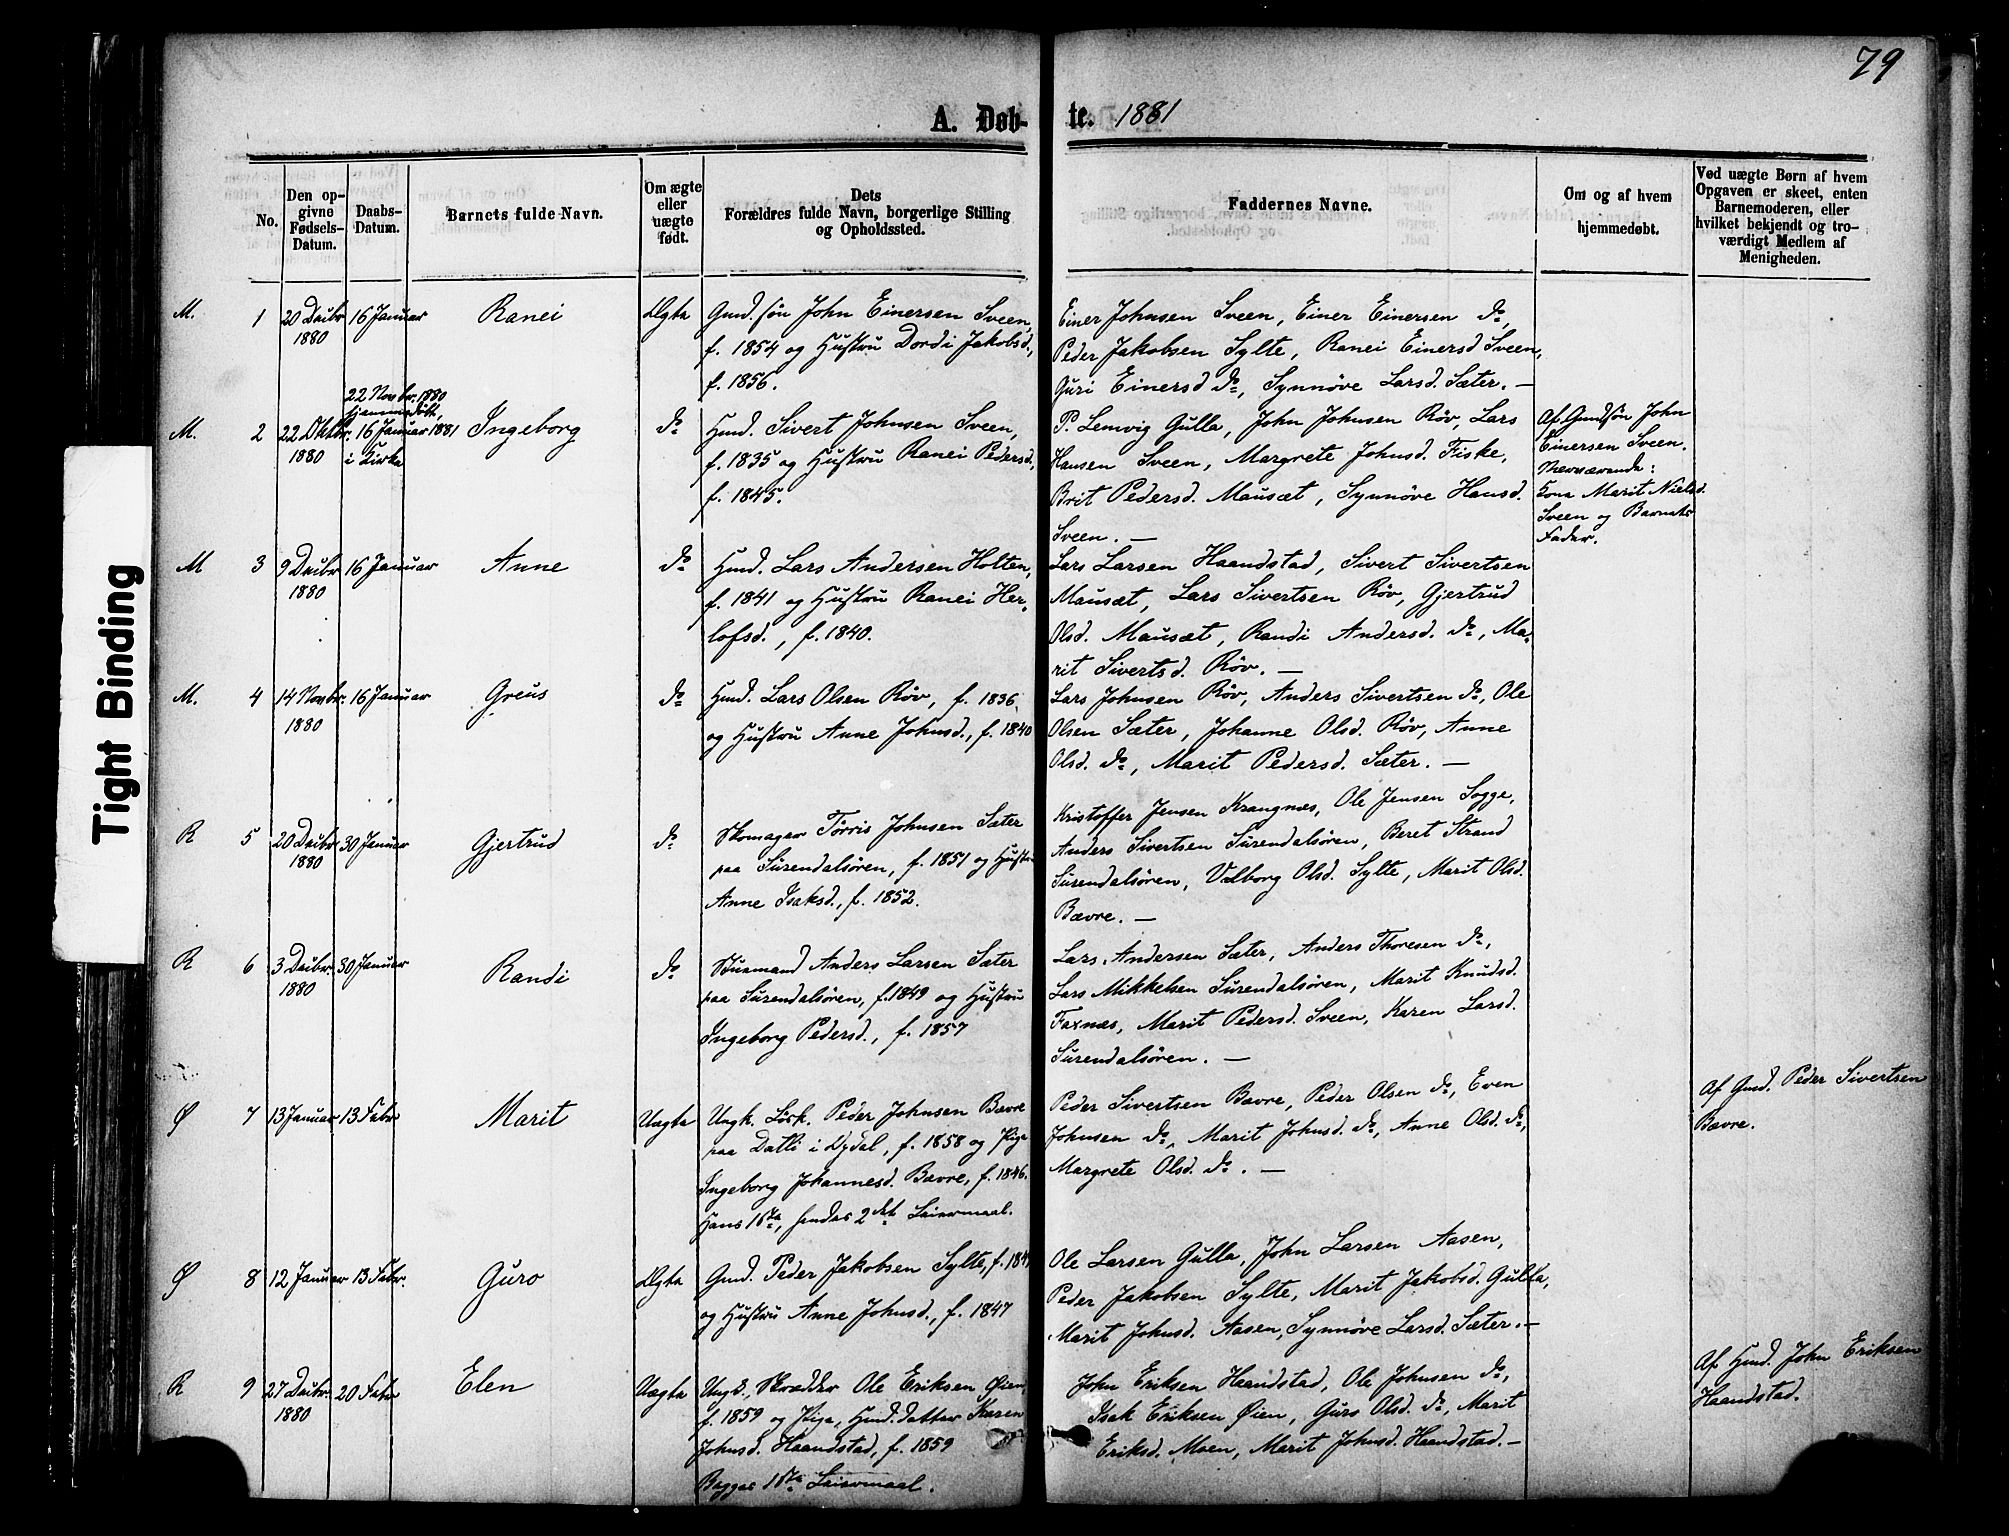 79
A. Døb- te. 1881
No.
Den op-
givne
Fødsels-
Datum.
Daabs-
Datum.
Barnets fulde Navn.
Om ægte
eller
uægte
født.
Dets
Forældres fulde Navn, borgerlige Stilling
og Opholdssted.
Faddernes Navne.
Om og af hvem
hjemmedøbt.
Ved uægte Børn af hvem
Opgaven er skeet, enten
Barnemoderen, eller
hvilket bekjendt og tro-
værdigt Medlem af
Menigheden.
M. 1
20 Decbr.
1880
16 Januar
Ranei
Ægte
Gmd.søn John Einersen Sveen,
f. 1854 og Hustru Dordi Jakobsd.,
f. 1856.
Einer Johnsen Sveen, Einer Einersen do,
Peder Jakobsen Sylte, Ranei Einersd Sveen,
Guri Einersd do, Synnöve Larsd. Sæter. —
M. 2
22 Oktbr.
1880
22 Novbr. 1880
hjemmedöbt,
16 Januar 1881
i Kirke
Ingeborg
do
Gmd. Sivert Johnsen Sveen,
f. 1835 og Hustru Ranei Pedersd.,
f. 1845.
P. Lemvig Gulla, John Johnsen Röv, Lars
Hansen Sveen, Margrete Johnsd. Fiske,
Brit Pedersd. Mausæt, Synnöve Hansd.
Sveen. —
Af Gmdsön John
Einersen Sveen.
Nærværende:
Kone Marit Nielsd.
Sveen og Barnets
Fader.
M 3
9 Decbr
1880
16 Januar
Anne
do
Gmd. Lars Andersen Holten,
f. 1841 og Hustru Ranei Her-
lofsd., f. 1840.
Lars Larsen Haandstad, Sivert Sivertsen
Mausæt, Lars Sivertsen Röv, Gjertrud
Olsd. Mausæt, Randi Andersd. do, Ma-
rit Sivertsd. Röv. —
M. 4
14 Novbr.
1880
16 Januar
Greus
do
Gmd. Lars Olsen Röv, f. 1836
og Hustru Anne Johnsd., f. 1840
Lars Johnsen Röv, Anders Sivertsen do, Ole
Olsen Sæter, Johanne Olsd. Röv, Anne
Olsd. do, Marit Pedersd. Sæter. —
R 5
20 Decbr
1880
30 Januar
Gjertrud
do
Skomager Törris Johnsen Sæter
paa Surendalsören, f. 1851 og Hustru
Anne Isaksd., f. 1852.
Kristoffer Jensen Krangnæs, Ole Jensen Sogge,
Anders Sivertsen Surendalsören, Beret Strand
Surendalsören, Valborg Olsd. Sylte, Marit Olsd.
Bævre. —
R 6
3 Decbr.
1880
30 Januar
Randi
do
Husmand Anders Larsen Sæter
paa Surendalsören, f. 1849 og Hustru
Ingeborg Pedersd., f. 1857
Lars Andersen Sæter, Anders Thoresen do,
Lars Mikkelsen Surendalsören, Marit Knudsd.
Faxnæs, Marit Pedersd. Sveen, Karen Larsd.
Surendalsören. —
Ø 7
13 Januar
13 Febr
Marit
Uægte
Ungk. Peder Johnsen Bævre
paa Datli i Öydal, f. 1858 og Pige
Ingeborg Johannesd. Bævre, f. 1846.
Hans 1ste, hendes 2det Leiermaal.
Peder Sivertsen Bævre, Peder Olsen do, Even
Johnsen do, Marit Johnsd. do, Anne Olsd. do,
Margrete Olsd. do. —
Af Gmd. Peder Sivertsen
Bævre.
Ø 8
12 Januar
13 Febr.
Guro
Ægte
Gmd. Peder Jakobsen Sylte, f.
og Hustru Anne Johnsd., f. 1847
Ole Larsen Gulla, John Larsen Aasen,
Peder Jakobsen Sylte, Marit Jakobsd. Gulla,
Marit Johnsd. Aasen, Synnöve Larsd. Sæter. —
R 9
27 Decbr.
1880
20 Febr
Elen
Uægte
Ungk. Skrædder Ole Eriksen Øien
f. 1859 og Pige, Gmd.datter Karen
Johnsd. Haandstad, f. 1859
Begges 1ste Leiermaal.
John Eriksen Haandstad, Ole Johnsen do,
Isak Eriksen Øien, Guro Olsd. do, Marit
Eriksd. Moen, Marit Johnsd. Haandstad. —
Af Gmd. John Eriksen
Haandstad.
Tight Binding